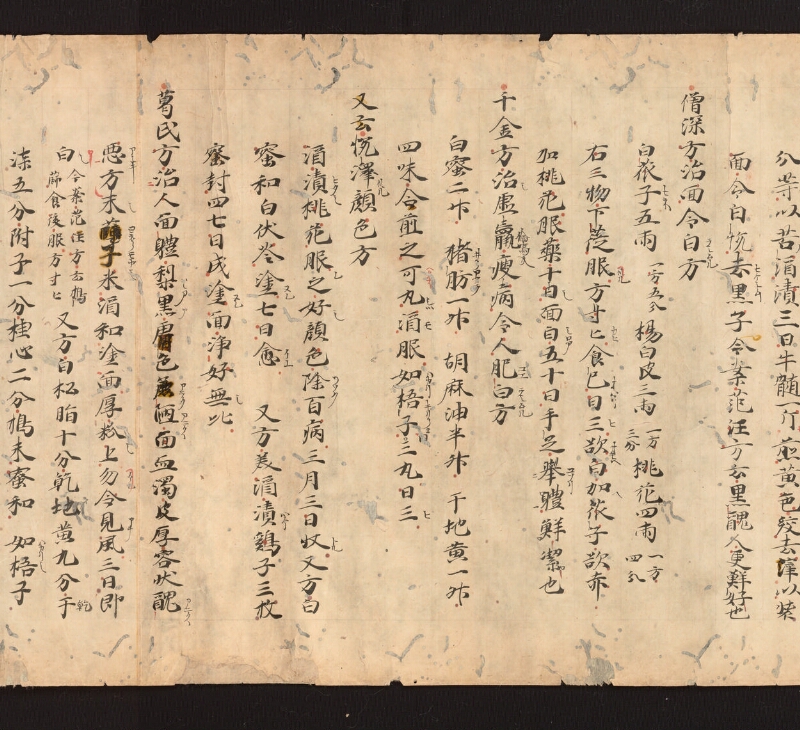 分等以苦酒漬三日牛髓一斤煎黄色絞去滓以塗
面令白悦去黒子今案范汪方云黒醜人更鮮好也
僧深方治面令白方
白苽子五兩 一方五分 楊白皮三兩 一方三分 桃花四兩 一方四分
右三物下篩服方寸匕食已日三欲白加苽子欲赤
加桃花服藥十日面白五十日手足舉體鮮潔也
千金方治虚羸瘦病令人肥白方
白蜜二升 猪肪一升 胡麻油半升 干地黄一升
四味合煎之可丸酒服如梧子三丸日三
又云悦澤顔色方
酒漬桃花服之好顔色除百病三月三日收又方白
蜜和白伏苓塗七日愈 又方美酒漬鷄子三枚
蜜封四七日成塗面淨好無比
葛氏方治人面體梨黒膚色 陋面血濁皮厚容状醜
悪方末 子 酒和塗面厚 上勿令見風三日即
白 今案范汪方云 篩食後服方寸匕 又方白松脂十分乾地黄九分干
漆五分附子一分桂心二分搗末蜜和 如梧子